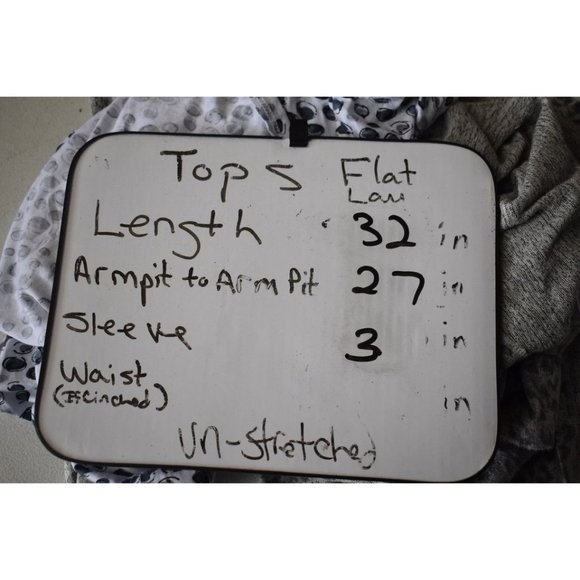 Tops Flat
Law
Length 32 in
Armpit to Arm Pit 27 in
Sleeve 3 in
Waist
(If Cinched) in
Un-Stretched